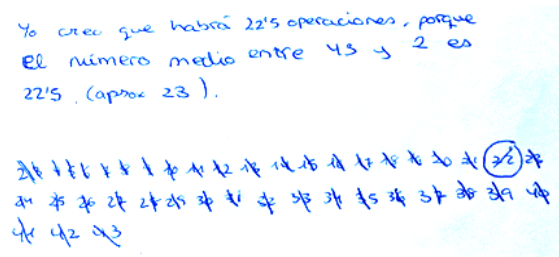 Yo creo que habrá 22'5 operaciones, porque
el número medio entre 43 y 2 es
22'5. (aprox 23).
2 3 4 5 6 7 8 9 10 11 12 13 14 15 16 17 18 19 20 21 22 23
24 25 26 27 28 29 30 31 32 33 34 35 36 37 38 39 40
41 42 43